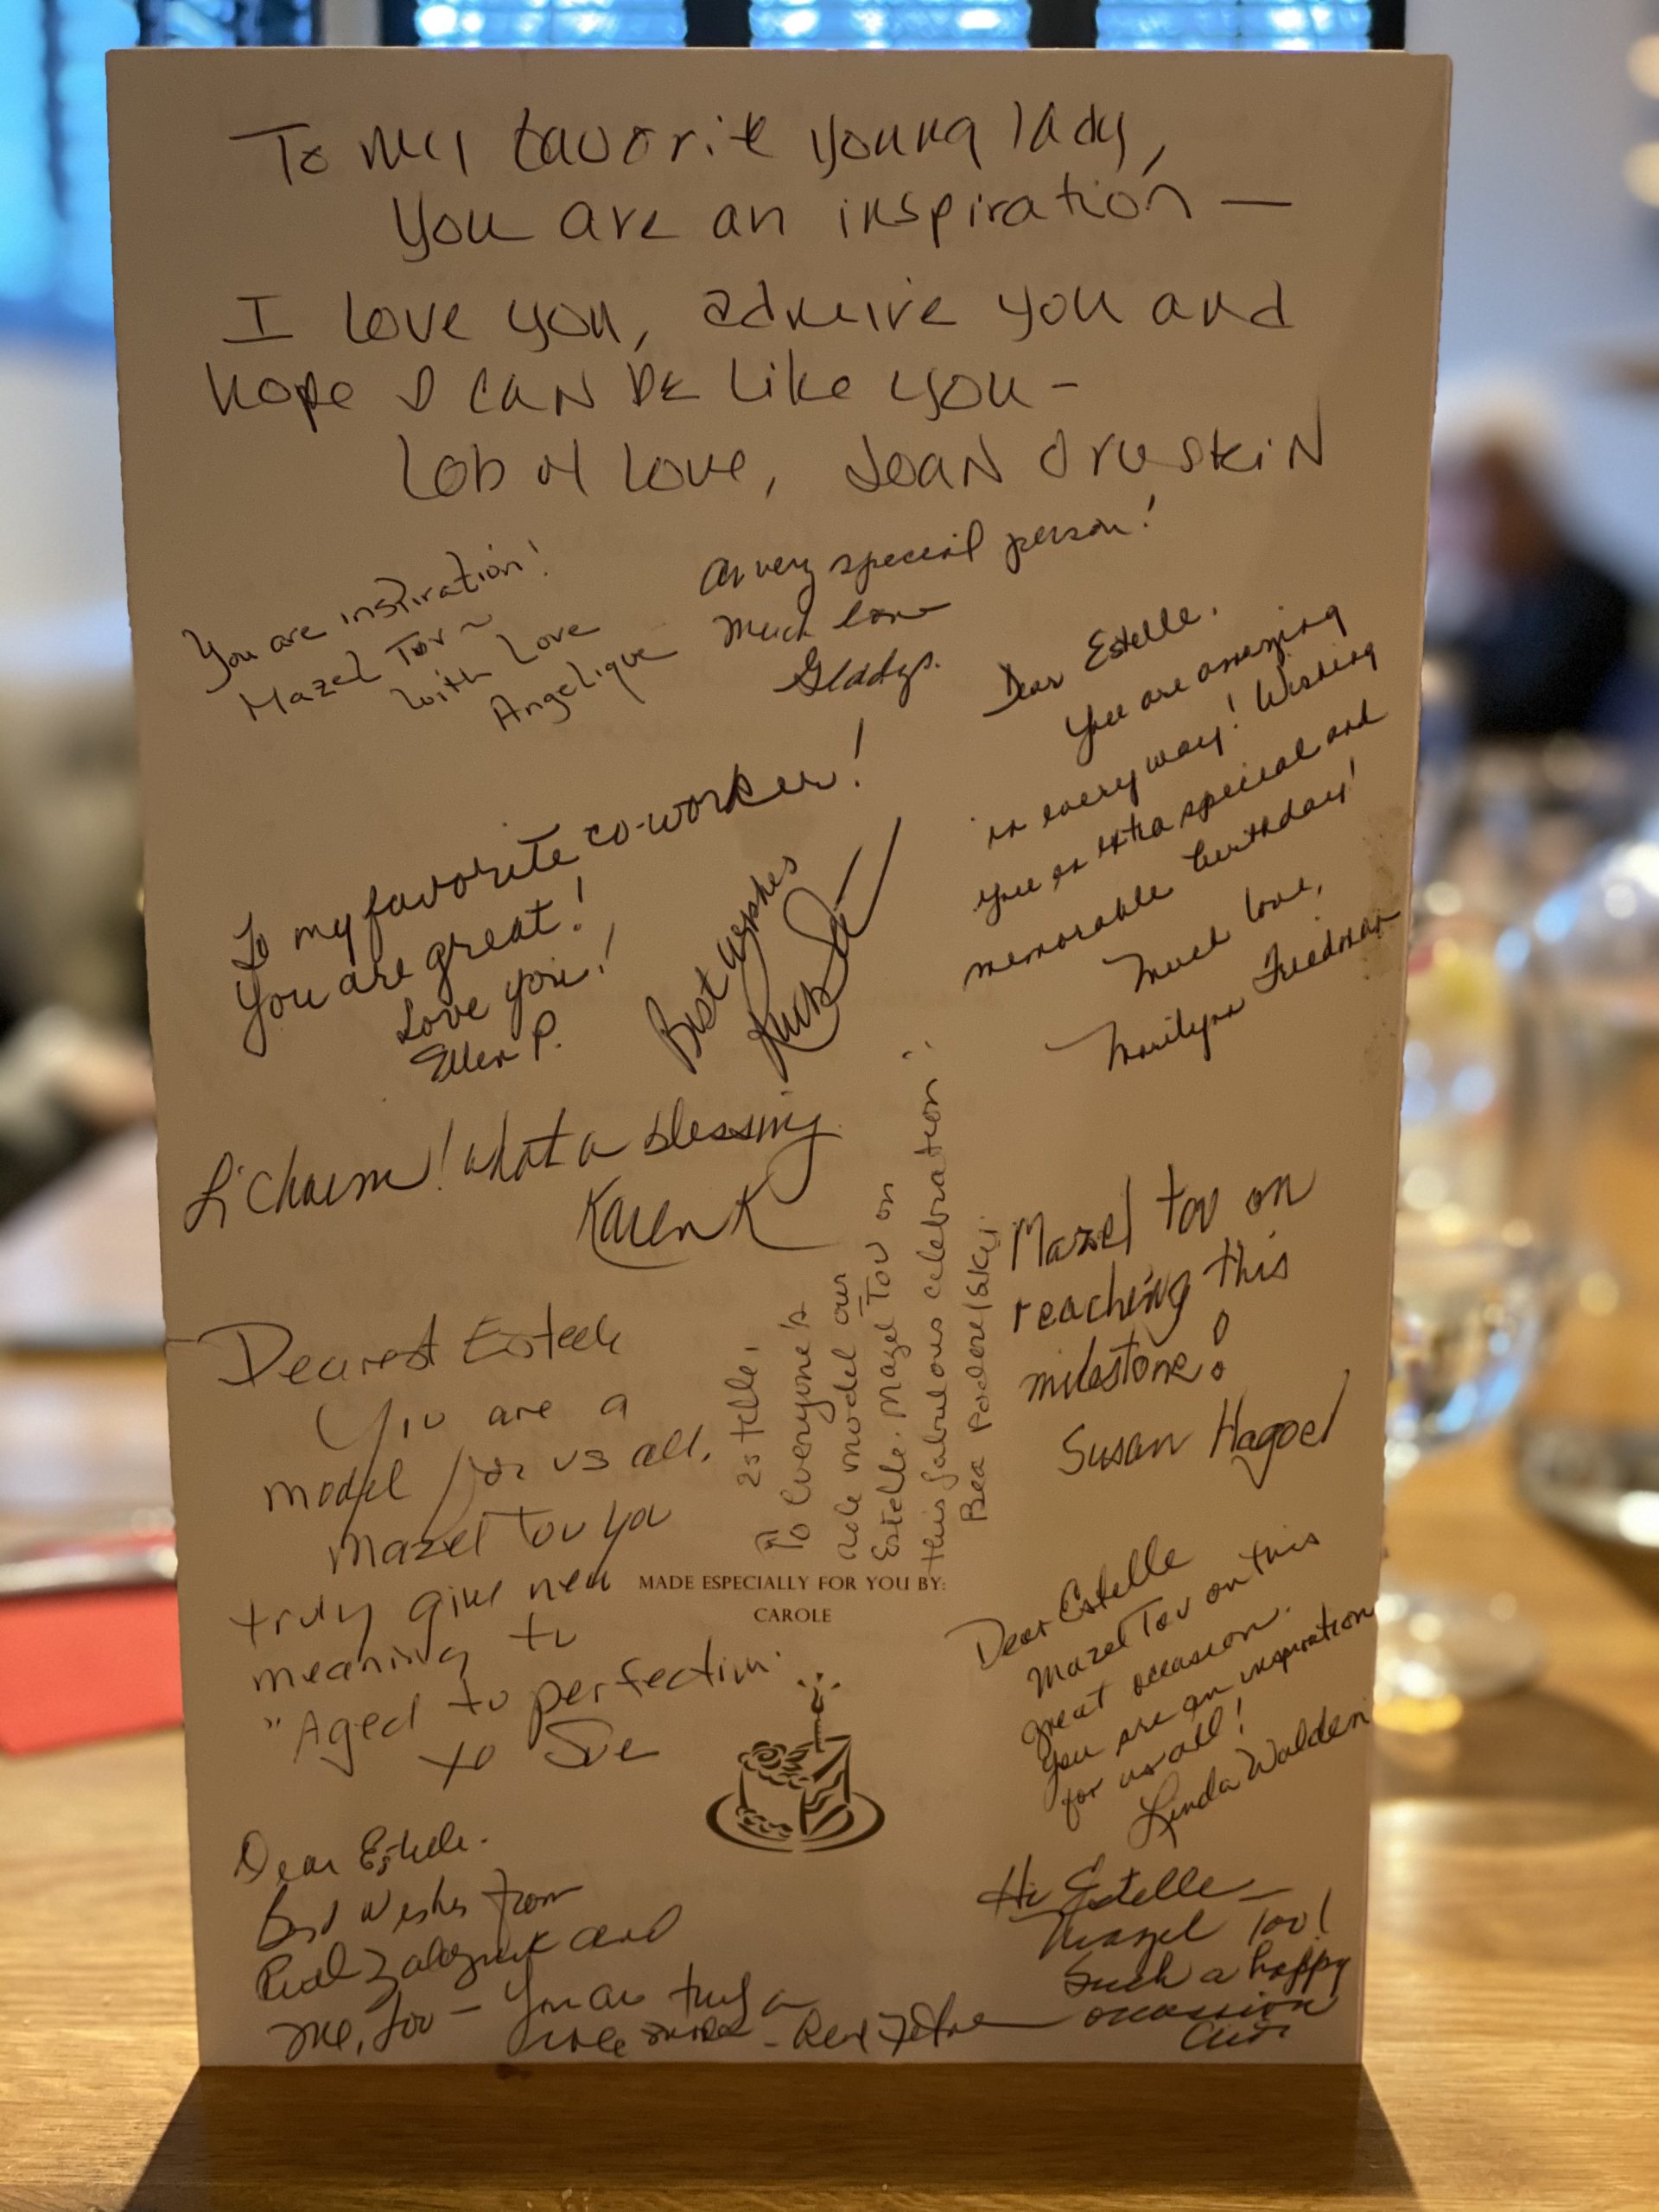 To my favorite young lady,
You are an inspiration —
I love you, admire you and
hope I can be like you -
Lots of love, Joan Druskin
You are inspiration!
Mazel Tov ~
with Love
Angelique
A very special person!
Much love
Gladys.
Dear Estelle.
You are amazing
in every way! Wishing
you an extra special and
memorable birthday!
Much love,
Marilyn Freedman
To my favorite co-worker!
You are great!
Love you!
Ellen P.
Best wishes
L'Chaim! What a blessing
Karen K
Estelle,
To everyone's
role model our
Estelle. Mazel Tov on
this fabulous celebration!
Bea Podorelskij.
Mazel tov on
reaching this
milestone!
Susan Hagoel
Dearest Estelle
You are a
model for us all.
Mazel Tov you
truly give new
meaning to
"Aged to perfection.
xo Sue
MADE ESPECIALLY FOR YOU BY:
CAROLE
Dear Estelle
Mazel Tov on this
great occasion.
You are an inspiration
for us all!
Linda Walden
Dear Estelle.
Best Wishes from
and
me, too - You are truly a
role model -
Hi Estelle -
Mazel Tov!
Such a happy
occasion